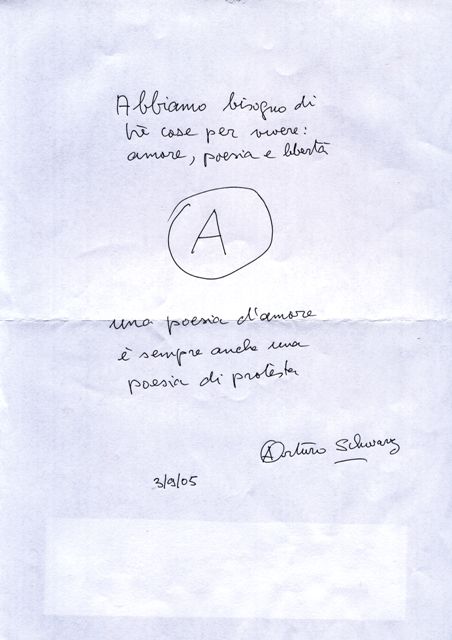 Abbiamo bisogno di
trè cose per vivere:
amore, poesia e libertà
A
una poesia d'amore
è sempre anche una
poesia di protesta
Arturo Schwarz
3/9/05